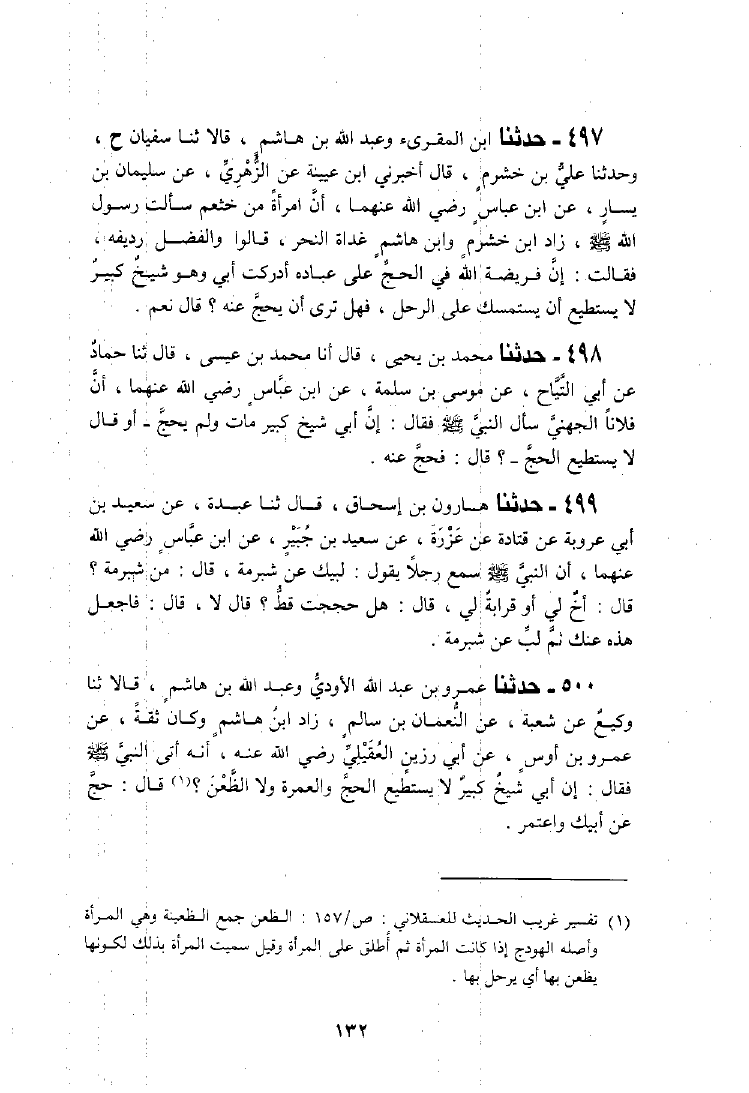 ٤٩٧ ـ حدثنا ابن المقرىء وعبد الله بن هاشمٍ ، قالا ثنا سفيان ح ،
وحدثنا عليُّ بن خشرمٍ ، قال أخبرني ابن عيينة عن الزُّهْرِيِّ ، عن سليمان بن
يسارٍ ، عن ابن عباسٍ رضي الله عنهما ، أنَّ امرأةً من خثعم سألت رسول
الله ﷺ ، زاد ابن خشرمٍ وابن هاشمٍ غداة النحر ، قالوا والفضل رديفه ،
فقالت : إنَّ فريضة الله في الحجِّ على عباده أدركت أبي وهو شيخٌ كبيرٌ
لا يستطيع أن يستمسك على الرحل ، فهل ترى أن يحجَّ عنه ؟ قال نعم .
٤٩٨ ـ حدثنا محمد بن يحيى ، قال أنا محمد بن عيسى ، قال ثنا حمادٌ
عن أبي التَّيَّاح ، عن موسى بن سلمة ، عن ابن عبَّاسٍ رضي الله عنهما ، أنَّ
فلاناً الجهنيَّ سأل النبيَّ ﷺ فقال : إنَّ أبي شيخ كبير مات ولم يحجَّ ـ أو قال
لا يستطيع الحجَّ ـ ؟ قال : فحجَّ عنه .
٤٩٩ ـ حدثنا هارون بن إسحاق ، قال ثنا عبدة ، عن سعيد بن
أبي عروبة عن قتادة عن عَزْرَةَ ، عن سعيد بن جُبَيْرٍ ، عن ابن عبَّاسٍ رضي الله
عنهما ، أن النبيَّ ﷺ سمع رجلاً يقول : لبيك عن شبرمة ، قال : من شبرمة ؟
قال : أخٌ لي أو قرابةٌ لي ، قال : هل حججت قطُّ ؟ قال لا ، قال : فاجعل
هذه عنك ثمَّ لبِّ عن شبرمة .
٥٠٠ ـ حدثنا عمرو بن عبد الله الأوديُّ وعبد الله بن هاشمٍ ، قالا ثنا
وكيعٌ عن شعبة ، عن النُّعمان بن سالمٍ ، زاد ابنُ هاشمٍ وكان ثقةً ، عن
عمرو بن أوسٍ ، عن أبي رزينٍ العُقَيْلِيِّ رضي الله عنه ، أنه أتى النبيَّ ﷺ
فقال : إن أبي شيخٌ كبيرٌ لا يستطيع الحجَّ والعمرة ولا الظَّعْنَ ؟(١) قال : حجَّ
عن أبيك واعتمر .
(١) تفسير غريب الحديث للعسقلاني : ص/١٥٧ : الظعن جمع الظعينة وهي المرأة
وأصله الهودج إذا كانت المرأة ثم أُطلق على المرأة وقيل سميت المرأة بذلك لكونها
يظعن بها أي يرحل بها .
١٣٢